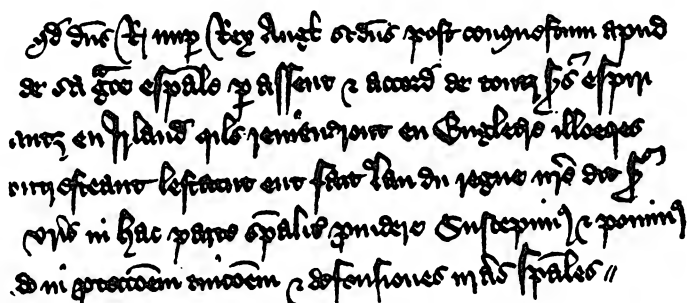 qd dns R nup Rex Angl scdus post conquestum apud
de sa gce espale p assent & accord de toutz ses espiri
antz en Irland qils reviendront en Engleterre illoeqes
esteant lestatut ent fait lan du regne nre dit sr
vris in hac parte spalit pvidere Suscepim' & ponim'
in pteccoem tuicoem & defensiones nras spales